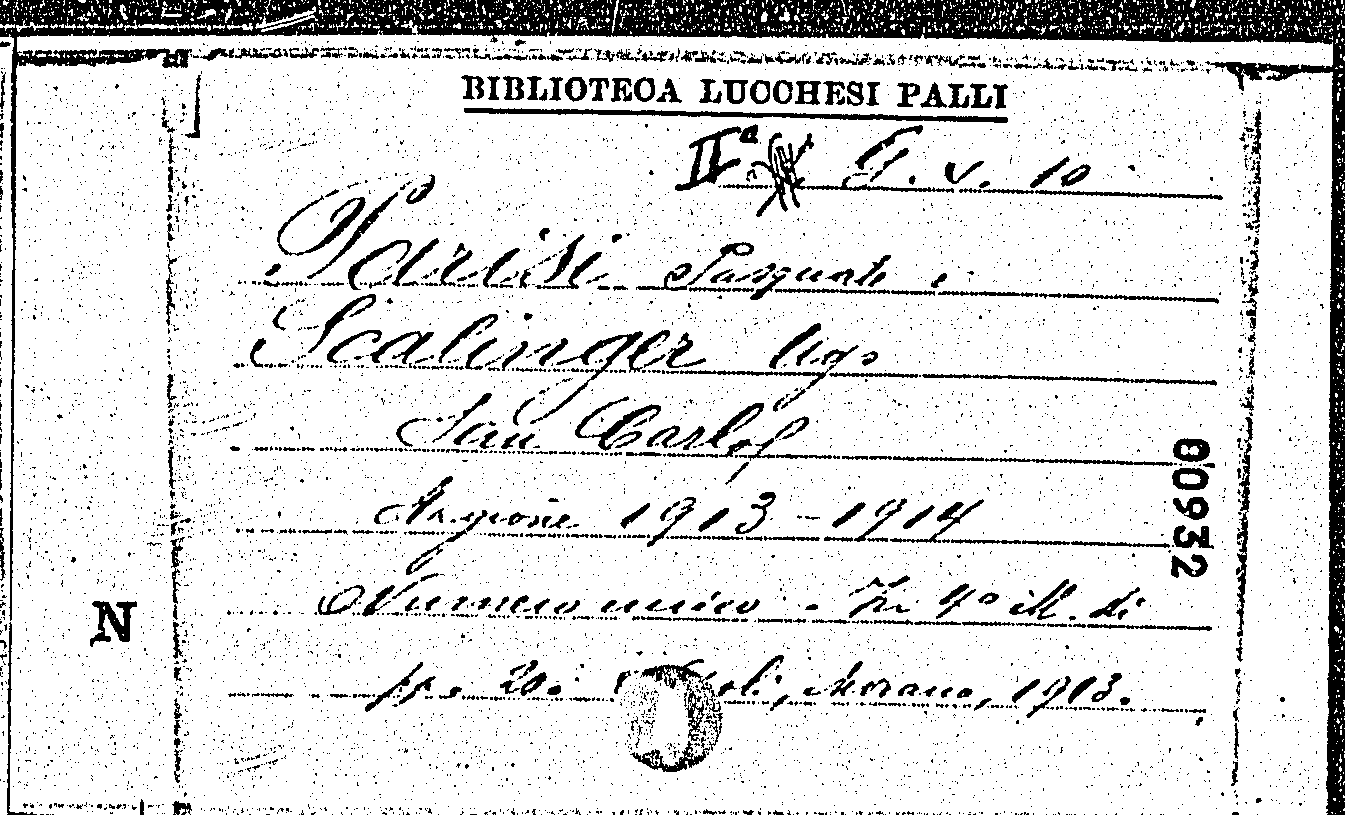 BIBLIOTECA LUCCHESI PALLI
IIª G. V. 10
Parisi Pasquale e
Scalinger Ugo
San Carlo
Stagione 1913-1914
Numero unico. In 4° ill. di
pp. 20. Morano, 1913.
00932
N